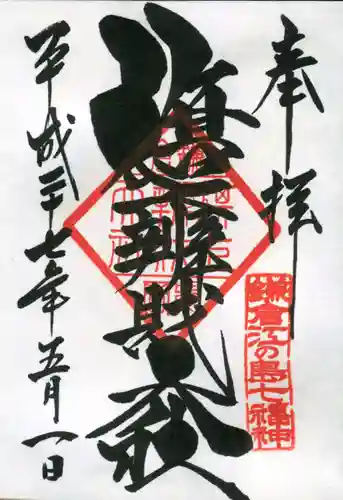 奉拝
鎌倉江の島七福神
旗上辨財天社
平成二十七年五月一日